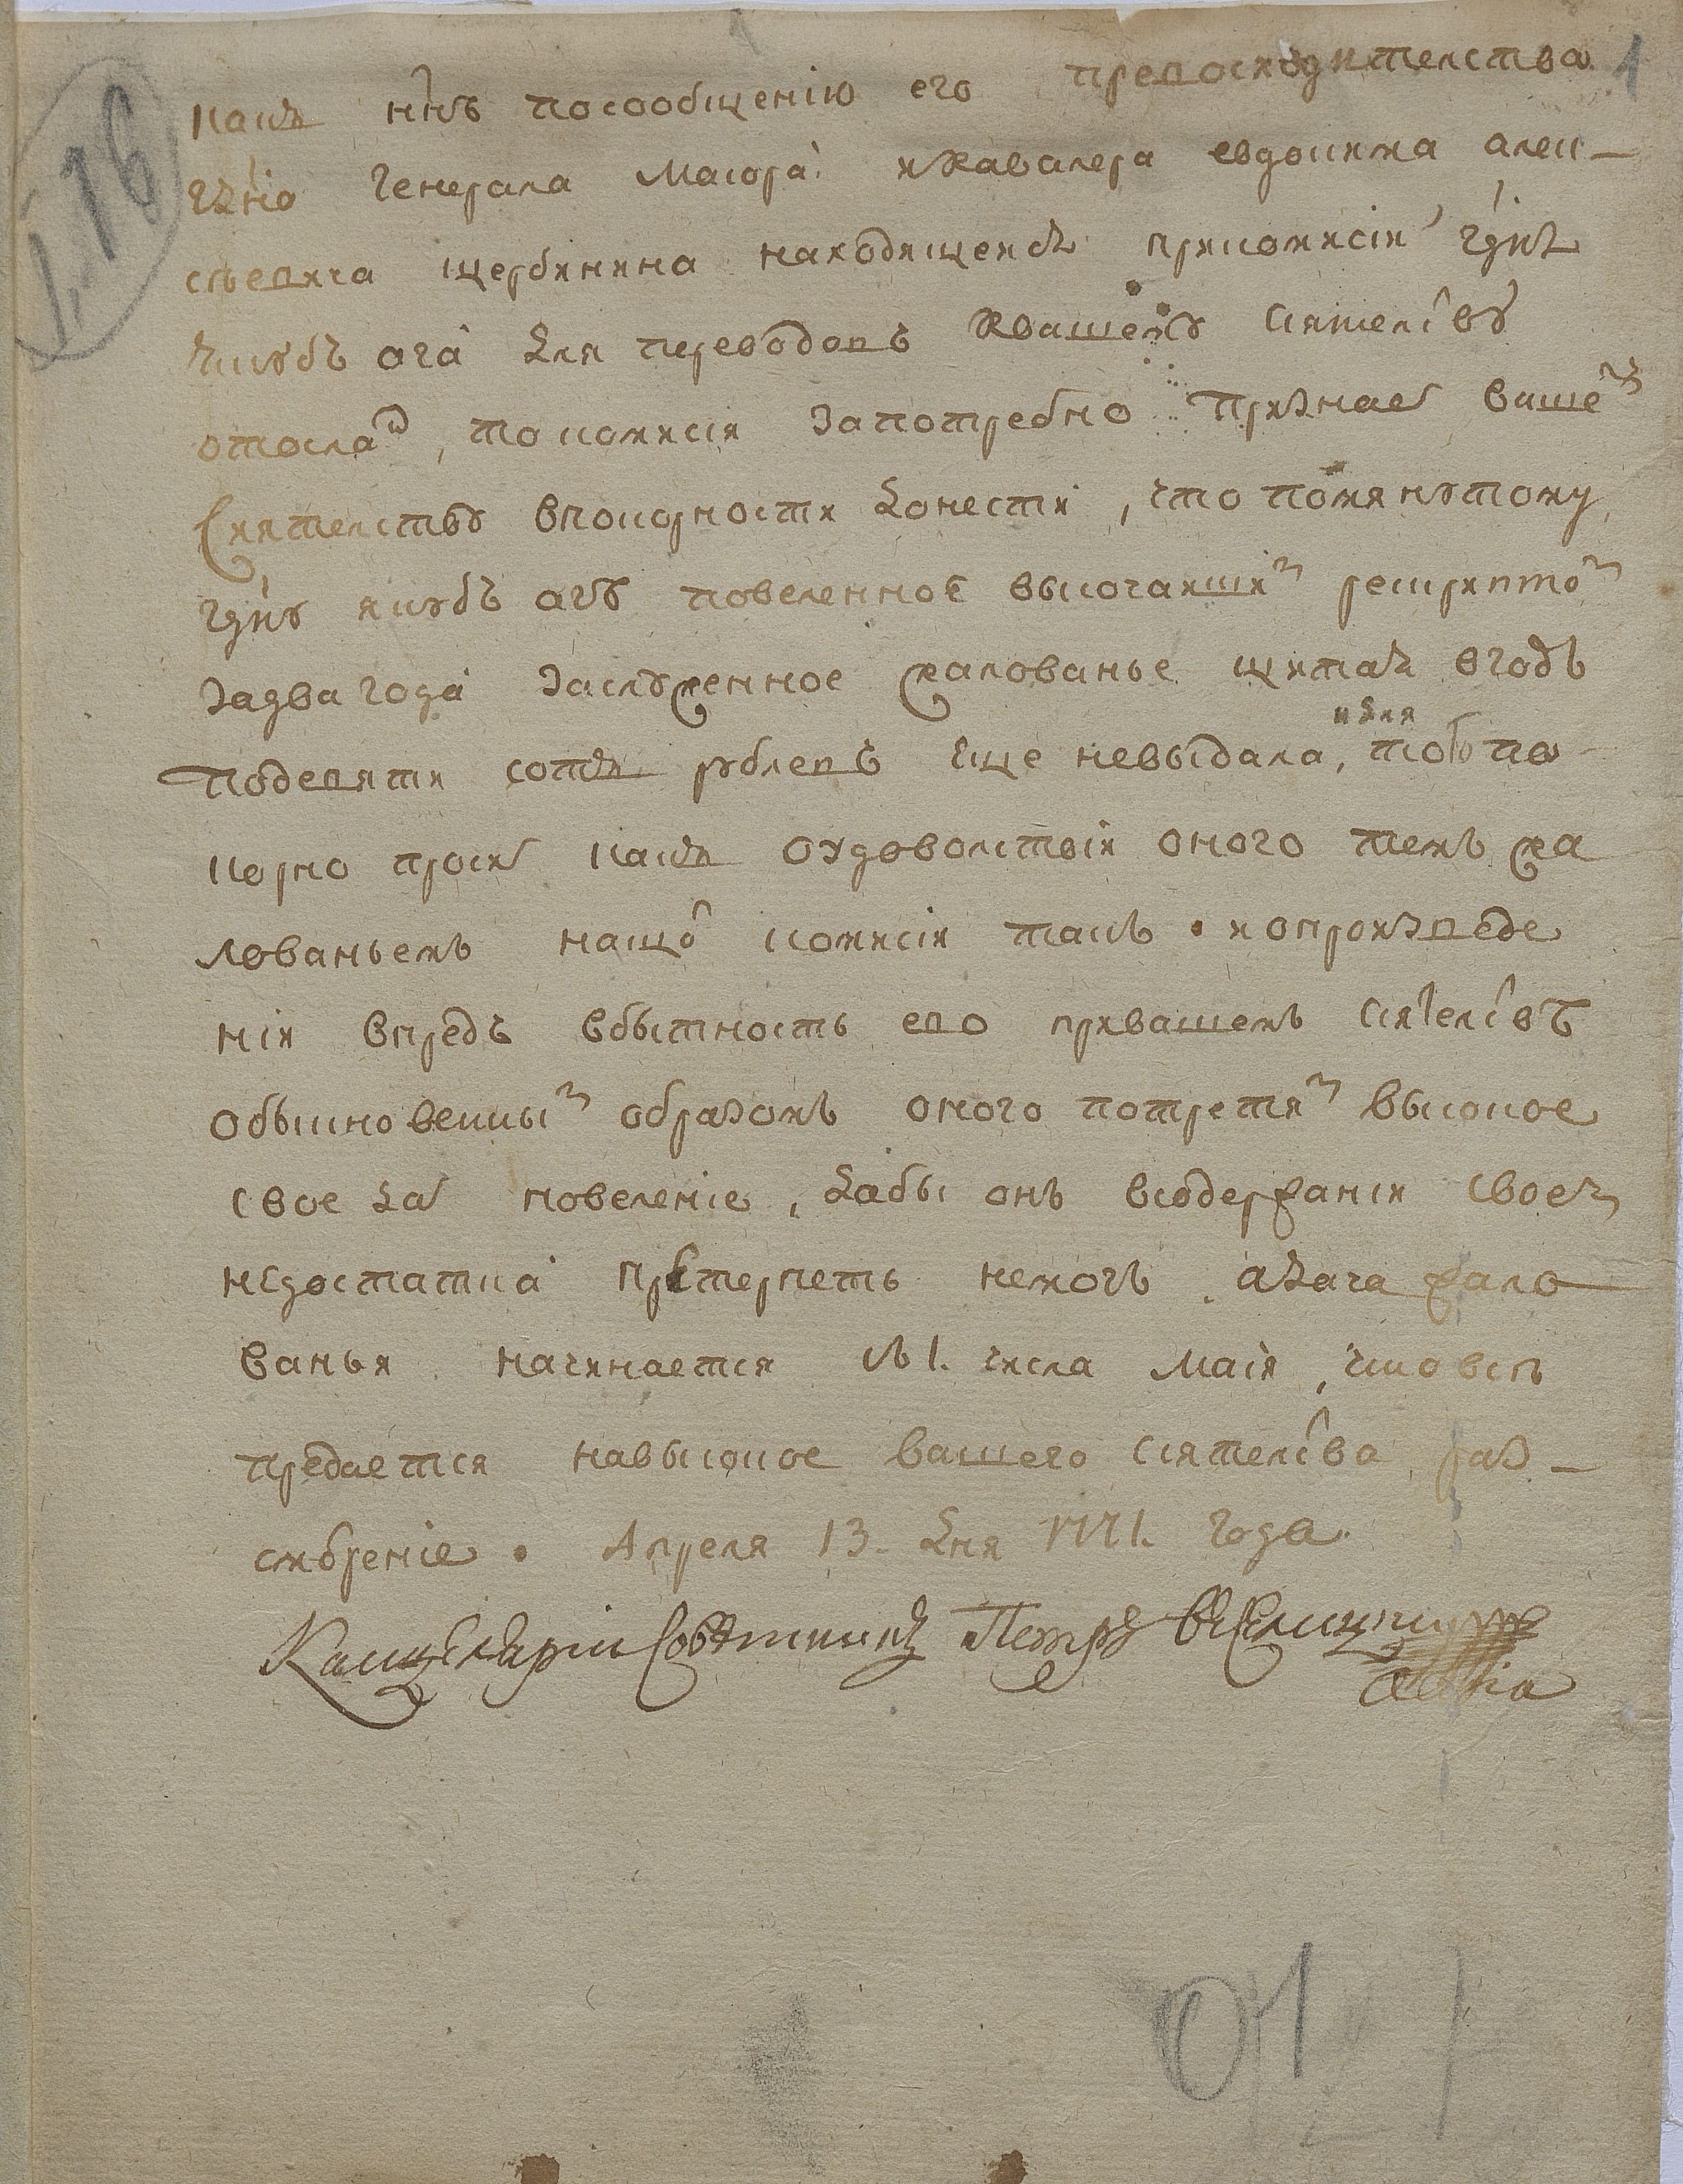 какъ ннѣ посообщенію его превосходителства 1
гдна генерала маиора икавалера евдокима алек-
сѣевича щербинина находящейся прикомисіи гднъ
якубъ ага для переводовъ квашему сіятелству
отосла, токомисія запотребно признае вашему
сіятелству впокорности донести, что помянутому
гдну якубъ агѣ повеленное высочаишим рескриптом
задва года заслуженное жалованье щитая вгодъ
подевяти сотъ рублевъ еще невыдала,
идля
того по
корно проси какъ оудоволствіи оного темъ жа
лованьемъ нашо комисіи такъ иопроизведе
ніи впредь вбытность ево привашемъ сіятелствѣ
обыкновенны образомъ оного потретям высокое
свое да повеленіе, дабы онъ всодержаніи своем
недостатка претерпеть немогъ, адача жало
ванья начинается съ 1. числа маія, что все
предается навысокое вашего сіятелства раз-
смотреніе. Апреля 13. дня 1771. года.
Канцеляріи Совѣтникъ Петръ Веселицкий